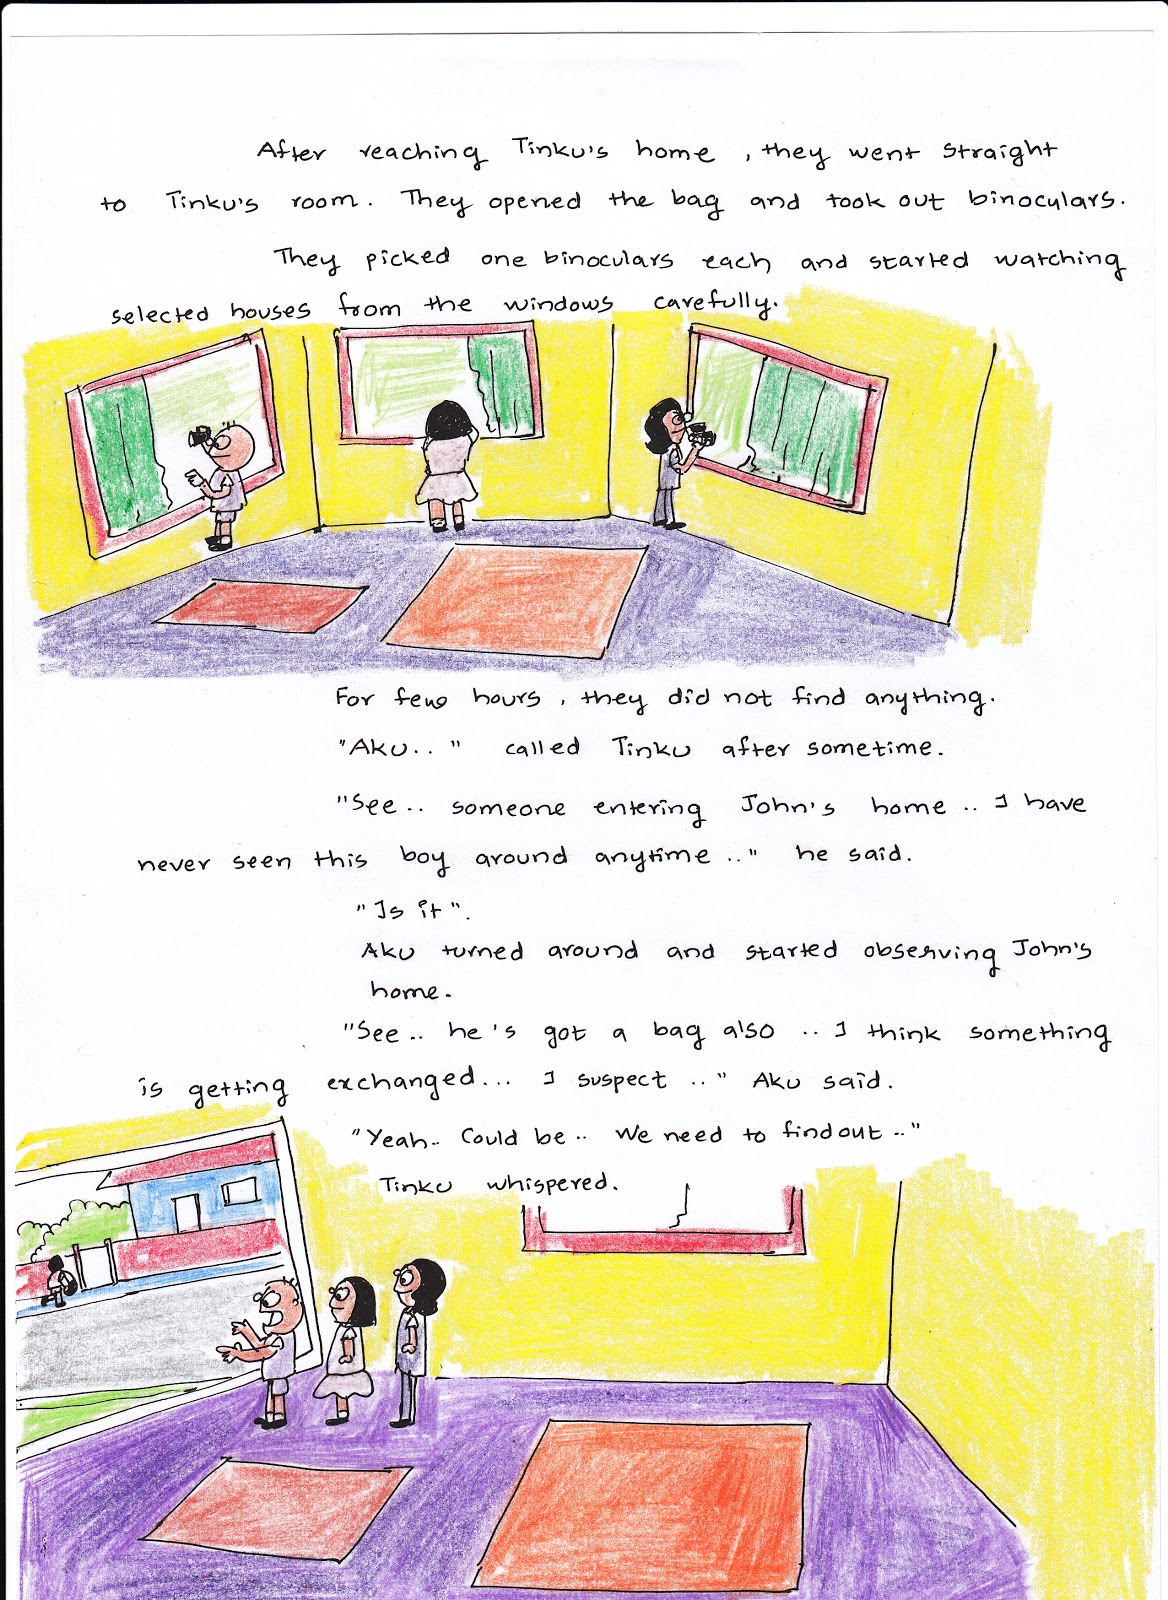 After reaching Tinku's home , they went straight
to Tinku's room. They opened the bag and took out binoculars.
They picked one binoculars each and started watching
selected houses from the windows carefully.
For few hours , they did not find anything.
"Aku.. " called Tinku after sometime.
"See.. someone entering John's home .. I have
never seen this boy around anytime .." he said.
"Is it".
Aku turned around and started observing John's
home.
"See.. he's got a bag also .. I think something
is getting exchanged... I suspect .." Aku said.
"Yeah.. Could be.. We need to findout .."
Tinku whispered.